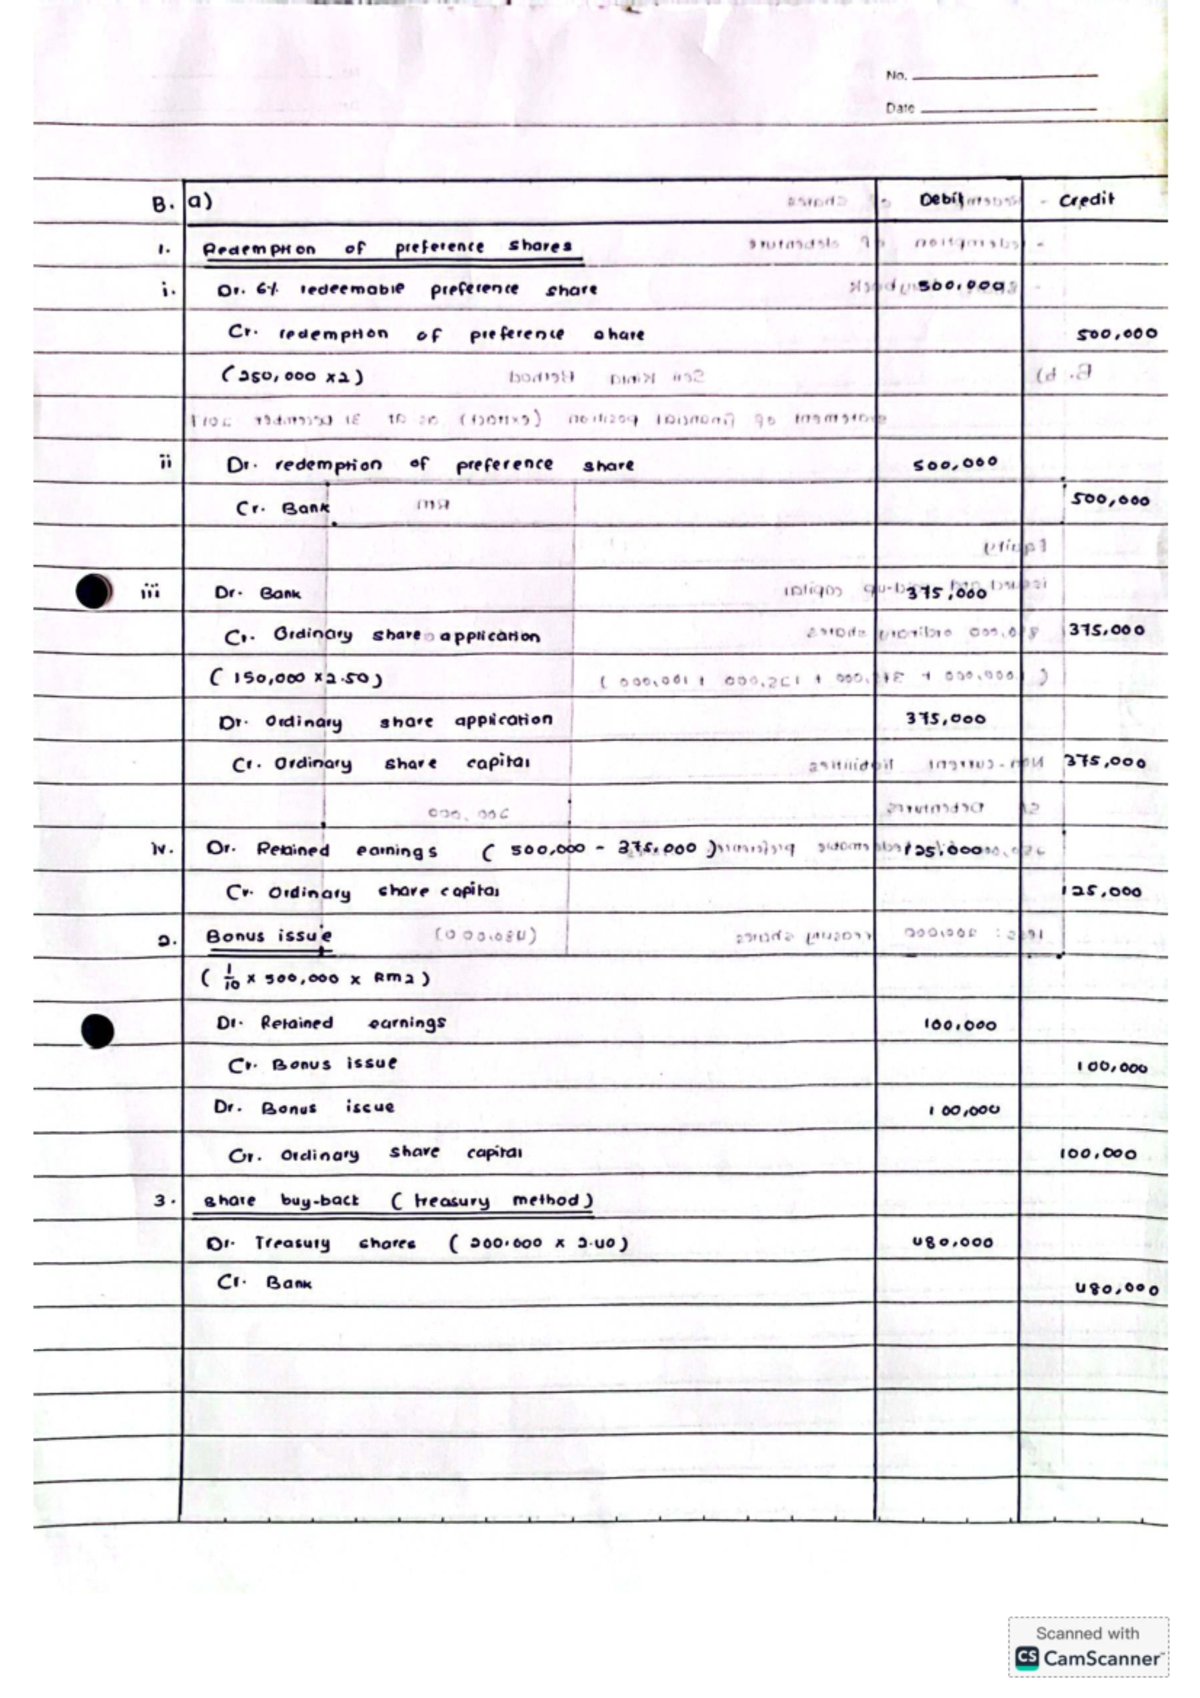 No.
Date
B. a) Debit Credit
1. Redemption of preference shares
i. Dr. 6% redeemable preference share 500,000
Cr. redemption of preference share 500,000
(250,000 x2)
ii Dr. redemption of preference share 500,000
Cr. Bank 500,000
iii Dr. Bank 375,000
Cr. Ordinary share application 375,000
(150,000 x2.50)
Dr. Ordinary share application 375,000
Cr. Ordinary share capital 375,000
iv. Dr. Retained earnings (500,000 - 375,000) 125,000
Cr. Ordinary share capital 125,000
2. Bonus issue
(1/10 x 500,000 x RM2)
Dr. Retained earnings 100,000
Cr. Bonus issue 100,000
Dr. Bonus issue 100,000
Cr. Ordinary share capital 100,000
3. Share buy-back (treasury method)
Dr. Treasury shares (200,000 x 2.40) 480,000
Cr. Bank 480,000
Scanned with
CS CamScanner